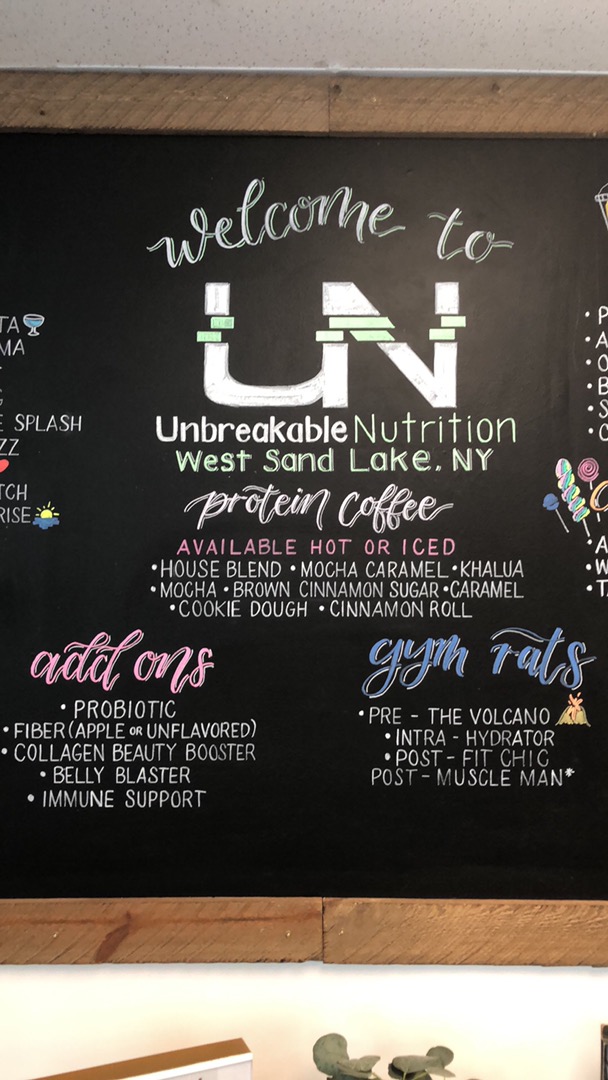 welcome to
UN
Unbreakable Nutrition
West Sand Lake, NY
protein coffee
AVAILABLE HOT OR ICED
•HOUSE BLEND •MOCHA CARAMEL•KHALUA
•MOCHA •BROWN CINNAMON SUGAR•CARAMEL
•COOKIE DOUGH •CINNAMON ROLL
add ons
•PROBIOTIC
•FIBER (APPLE OR UNFLAVORED)
•COLLAGEN BEAUTY BOOSTER
•BELLY BLASTER
•IMMUNE SUPPORT
gym rats
•PRE - THE VOLCANO
•INTRA - HYDRATOR
•POST - FIT CHIC
POST - MUSCLE MAN*
TA
MA
SPLASH
ZZ
TCH
RISE